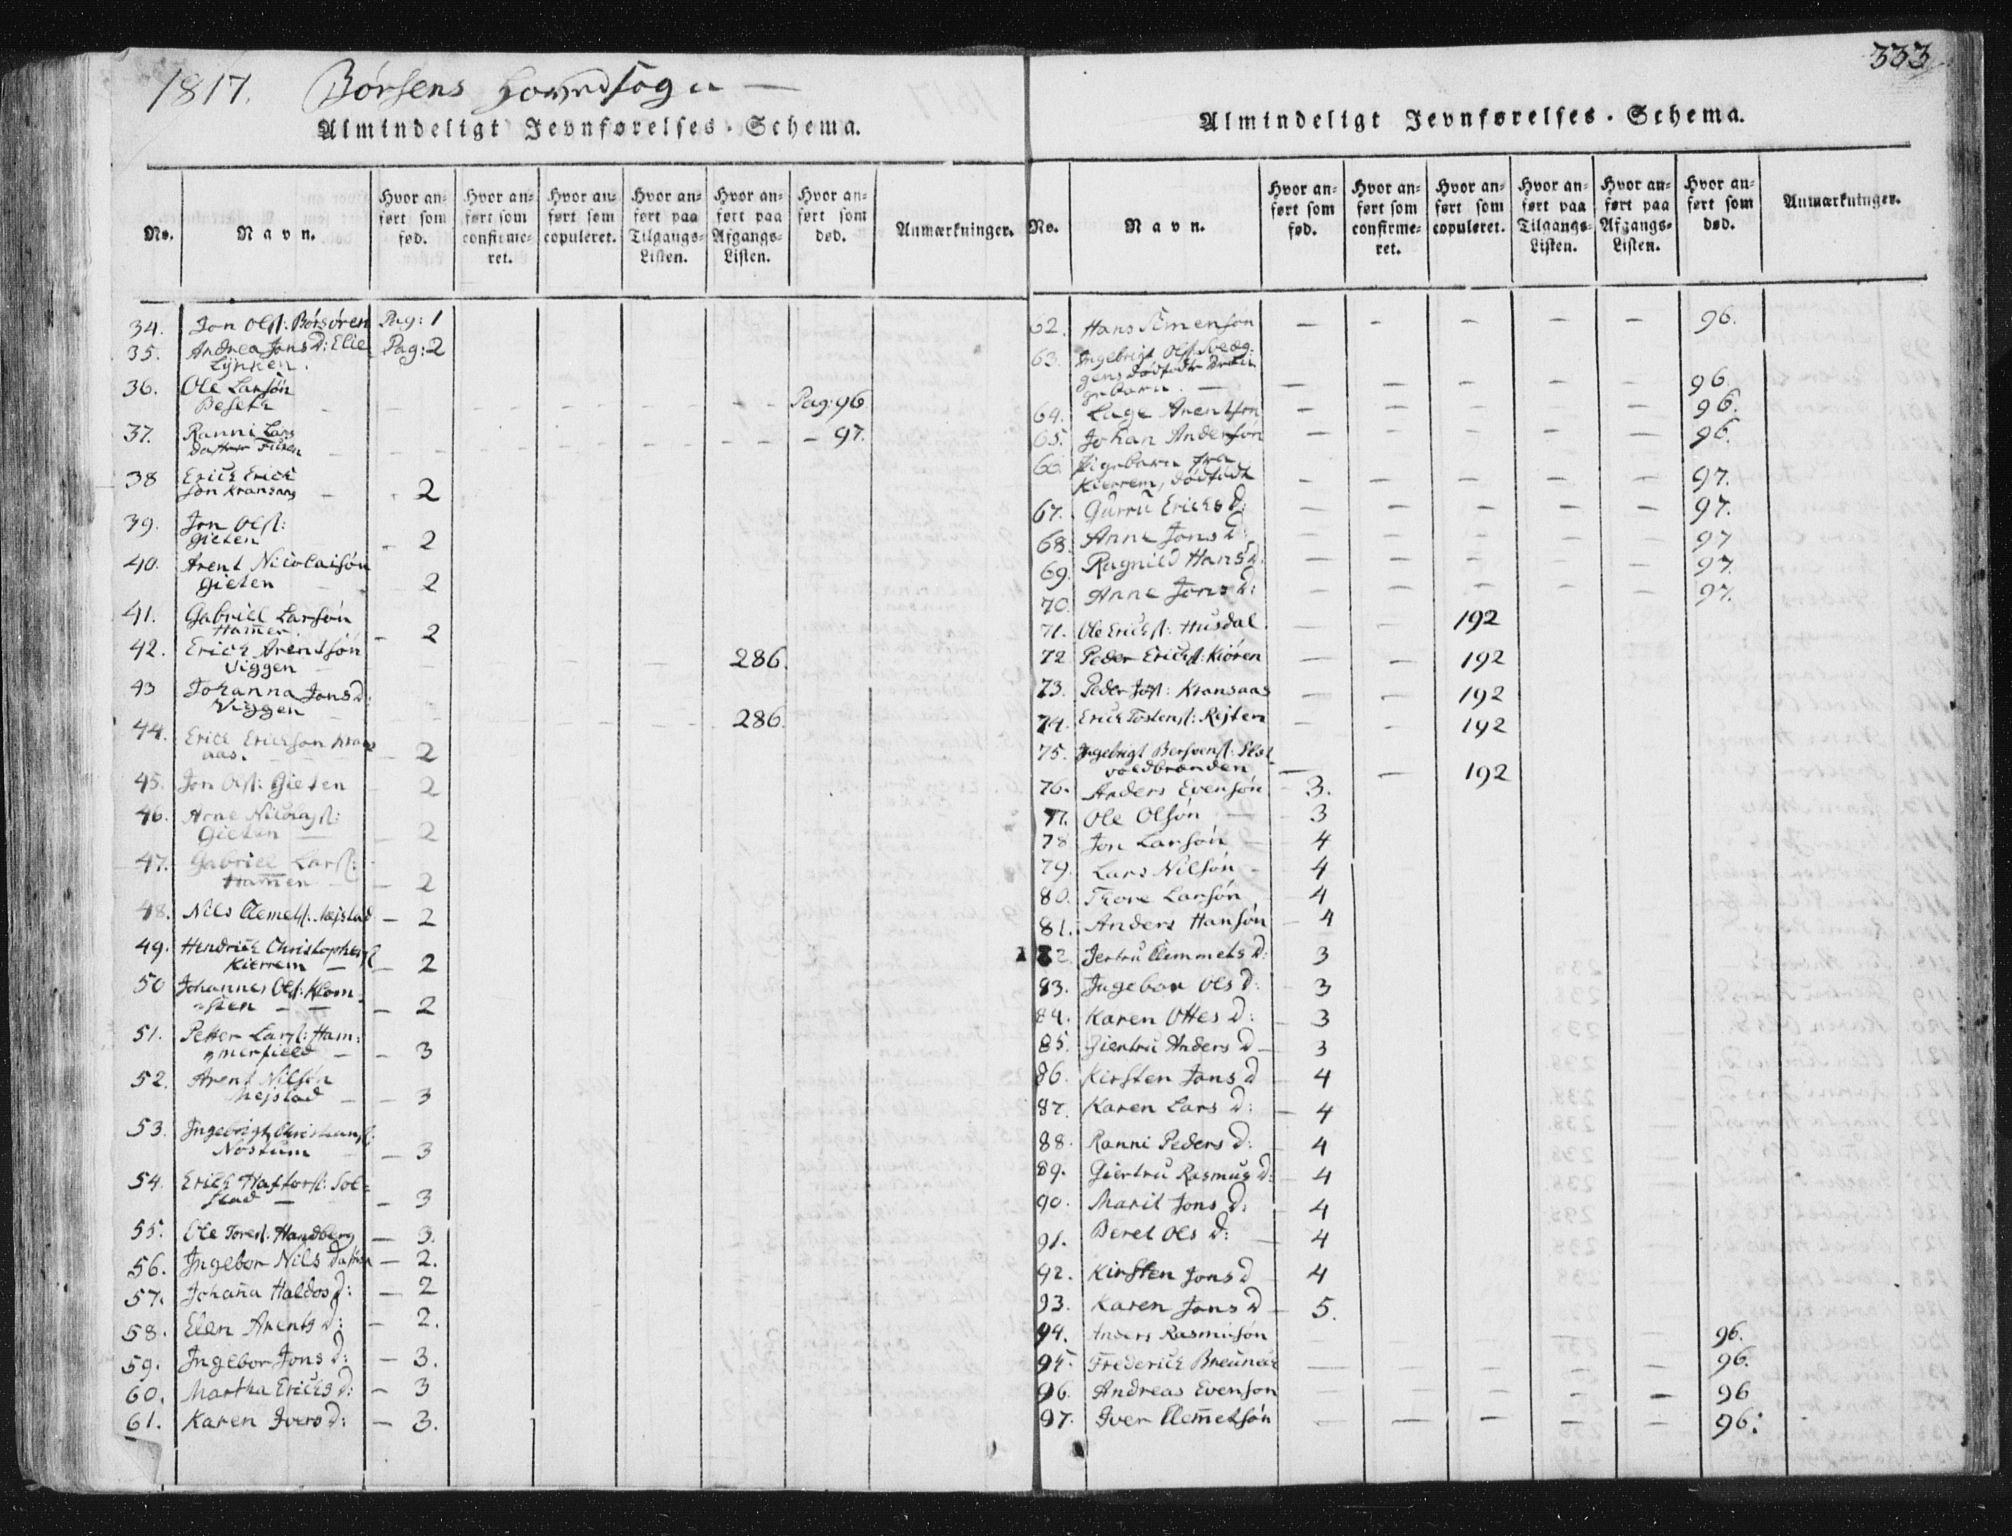 1817. Børsens Hovedsogn —
Almindeligt Jevnførelses-Schema.
No. Navn. Hvor anført som fød. Hvor anført som confirmeret. Hvor anført som copuleret. Hvor anført paa Tilgangs-Listen. Hvor anført paa Afgangs-Listen. Hvor anført som død. Anmærkninger.
34. Jon Ols: Børsøren Pag: 1
35. Andrea Jons D: Elie Pag: 2
Lýkken.
36. Ole Larsøn
Beseth Pag: 96
37. Ranni Lars
datter — 97.
38 Erich Erich
søn Kransaas — 2
39. Jon Ols:
Gieten — 2
40. Arent Nicolaisøn
Gieten — 2
41. Gabriel Larsøn
Ham̄er. — 2
42. Erich Arentsøn
Viggen — 286.
43 Johanna Jons D:
Viggen — 286.
44. Erich Erichson Krans
aas. — 2
45. Jon Ols: Gieten — 2
46. Arne Nicolays:
Gieten — 2
47. Gabriel Lars:
Ham̄en — 2
48. Nils Clemets: Mejstad — 2
49. Hendrich Christophers
Kierrem — 2
50 Johannes Ols: Klom
sten — 2
51. Petter Lars: Ham=
merfield — 3
52. Arent Nilsøn
Mejstad — 3
53. Ingebrigt Christians:
Nostum — 3
54. Erich Haftors: Sol=
stad — 3
55. Ole Tores: Handberg — 3.
56. Ingebor Nils Datter — 2.
57. Johan̄a Haldos D: — 2
58. Elen Arents D: — 2.
59. Ingebor Jons D: — 3.
60. Martha Erichs D: — 3
61. Karen Ivers D: — 3.
333
Almindeligt Jevnførelses-Schema.
No. Navn. Hvor anført som fød. Hvor anført som confirmeret. Hvor anført som copuleret. Hvor anført paa Tilgangs-Listen. Hvor anført paa Afgangs-Listen. Hvor anført som død. Anmærkninger.
62. Hans Simenson — 96.
63. Ingebrigt Ols: Skieg
gens Dødfødt Dren
gebarn. — 96.
64. Lage Arentson — 96.
65. Johan Andersøn — 96.
66. Pigebarn fra
Kierrem, Dødfødt — 97.
67. Gurru Erichs D: — 97.
68. Anne Jons D: — 97
69. Ragnild Hans D: — 97.
70. Anne Jons D: — 97.
71. Ole Erichs: Husdal — 192
72 Peder Erichs: Kiøren — 192
73. Peder Jons: Kransaas — 192
74. Erich Tostens: Rejten — 192
75. Ingebrigt Bersvens: Skol
voldbranden — 192
76. Anders Evensøn — 3.
77. Ole Olsøn — 3
78 Jon Larsøn — 4
79. Lars Nilsøn — 4
80. Thore Larsøn — 4
81. Anders Hansøn — 4
82. Jertru Clemmets D: 3
83. Ingebor Ols D: — 3
84. Karen Ottes D: — 3
85. Giertru Anders D — 3
86. Kirsten Jons D — 4
87. Karen Lars D: — 4
88. Ranni Peders D: — 4
89. Giertru Rasmus D: — 4
90. Marit Jons D: — 4
91. Beret Ols D: — 4
92. Kirsten Jons D — 4
93. Karen Jons D — 5.
94. Anders Rasmusøn — 96.
95. Frederich Breuneck — 96.
96. Andreas Evenson — 96
97. Iver Clem̄etsøn — 96.